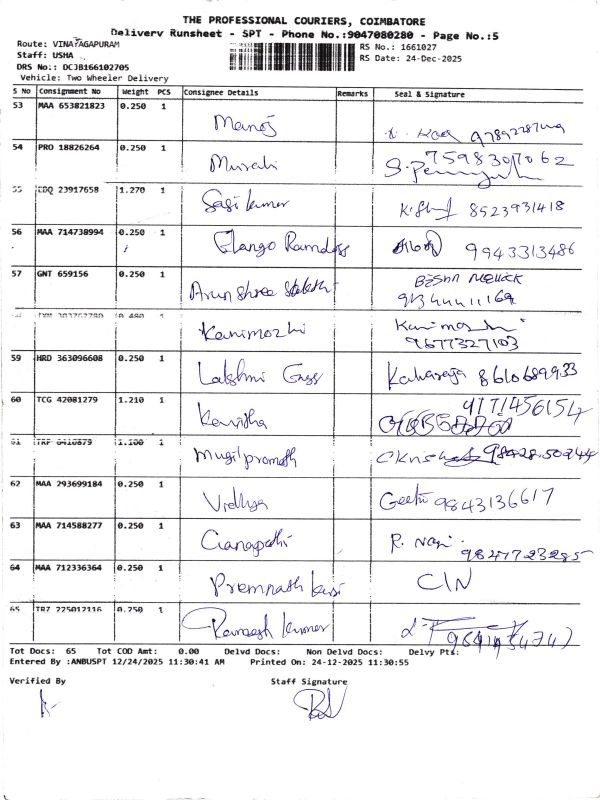 THE PROFESSIONAL COURIERS, COIMBATORE
Delivery Runsheet - SPT - Phone No.:9047080280 - Page No.:5
Route: VINAYAGAPURAM
Staff: USHA
DRS No.: DCJB166102705
Vehicle: Two Wheeler Delivery
RS No.: 1661027
RS Date: 24-Dec-2025
S No Consignment No Weight PCS Consignee Details Remarks Seal & Signature
53 MAA 653821823 0.250 1 Manoj
54 PRO 18826264 0.250 1 Murali 7598307062
55 EDQ 23917658 1.270 1 Sasikumar 8523931418
56 MAA 714738994 0.250 1 Elango Ramdoss 9943313486
57 GNT 659156 0.250 1 Arun shree
0.480 1 Kanimozhi Kanimozhi
9677327103
59 HRD 363096608 0.250 1 Lakshmi Gass 8610689933
60 TCG 42081279 1.210 1 Kavitha 9171456154
61 TRP 0410879 1.100 1 Mugilpromoth
62 MAA 293699184 0.250 1 Vidhya Geetu 9843136617
63 MAA 714588277 0.250 1 Ganapathi R.
9847723285
64 MAA 712336364 0.250 1 Premnath CIN
65 TRZ 225012116 0.750 1 Ramesh kumar
Tot Docs: 65 Tot COD Amt: 0.00 Delvd Docs: Non Delvd Docs: Delvy Pts:
Entered By :ANBUSPT 12/24/2025 11:30:41 AM Printed On: 24-12-2025 11:30:55
Verified By Staff Signature